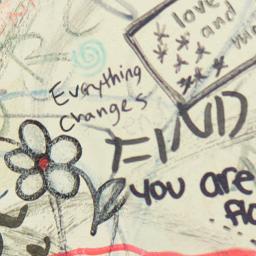 love
and
Everything
changes
FIND
you are